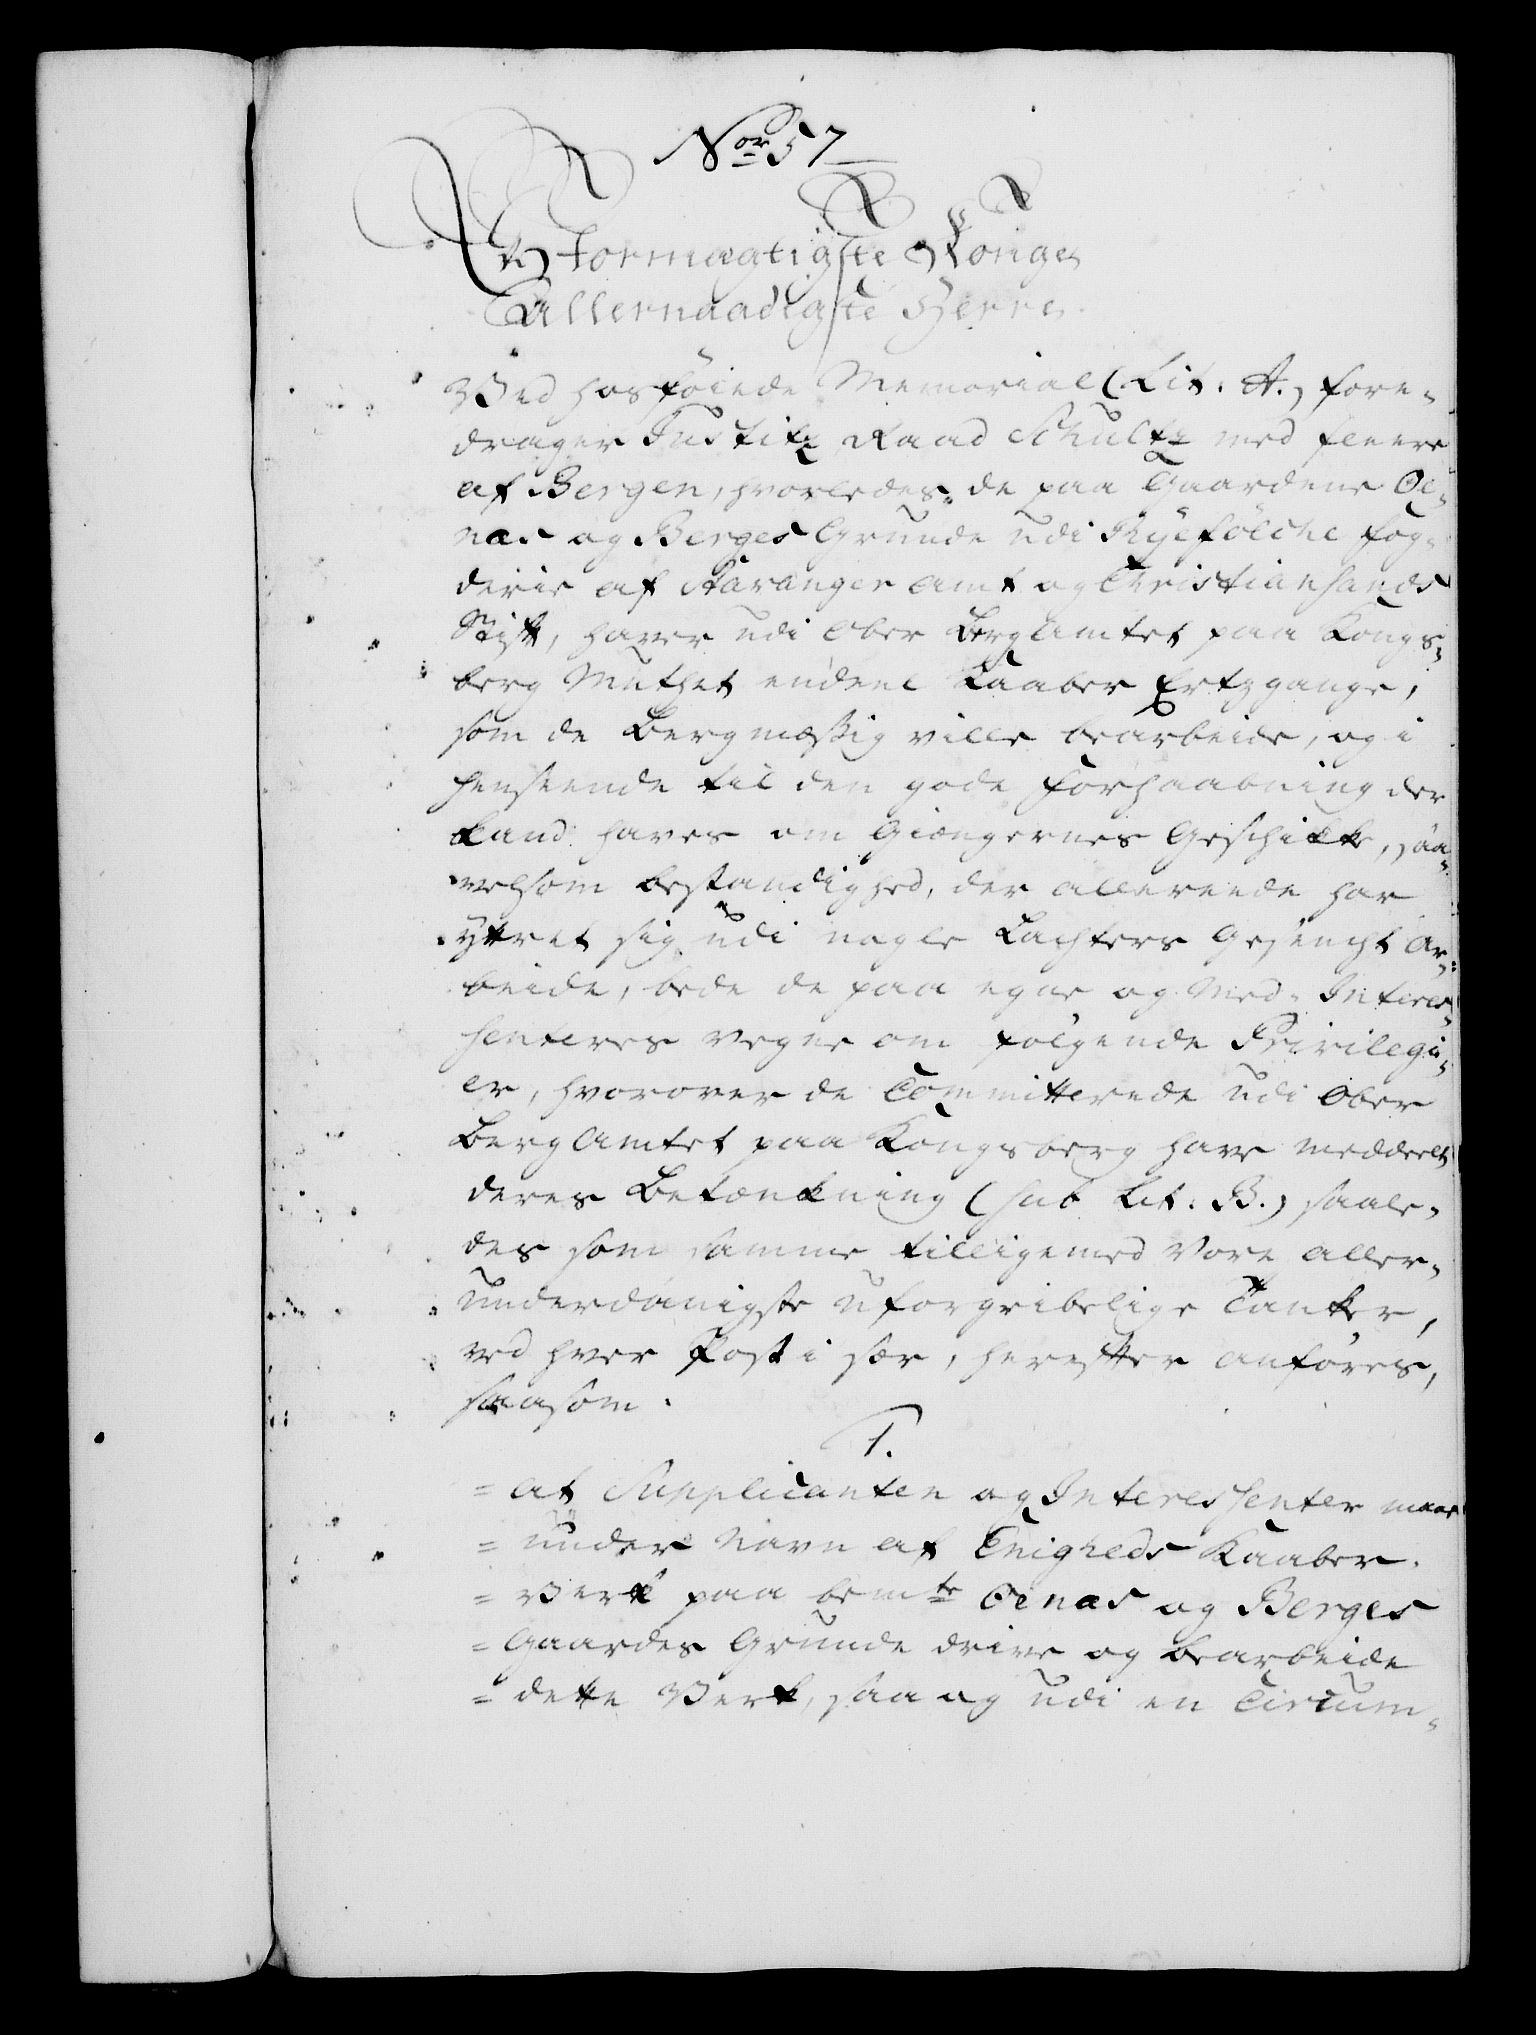 Nor 57
Stormægtigste Konge
Allernaadigste Herre.
Ved hosföiede Memorial (Lit. A.) fore-
drager Justitz Raad Schultz med fleere
af Bergen, hvorledes de paa Gaardene Oe-
næs og Berges Grunde udi Ryefölche fog-
derie af Stavanger Amt og Christiansands
Stift, haver udi Ober Berg Amtet paa Kongs-
berg Muthet endeel Kaaber Ertzgange,
som de Bergmæssig ville bearbeide, og i
henseende til den gode Forhaabning der
kand haves om Giængernes Geschikke, saa-
velsom bestandighed, der allereede har
yttret sig udi nogle Lachters Gesencht Ar-
beide, bede de paa egne og Med-Interes-
senteres vegne om følgende Privilegi-
er, hvorover de Committerede udi Ober
Berg Amtet paa Kongsberg have meddeelt
deres Betænkning (sub Lit. B.) saale-
des som samme tilligemed Vore aller-
underdanigste uforgribelige Tanker,
ved hver Post i sær, herefter anföres,
saasom.
1.
= at Supplicanten og Interessenter maae
= under Navn af Enigheds Kaaber.
= Verk paa bemte Oenæs og Berges
= Gaardes Grunde drive og bearbeide
= dette Verk, saa og udi en Circum-